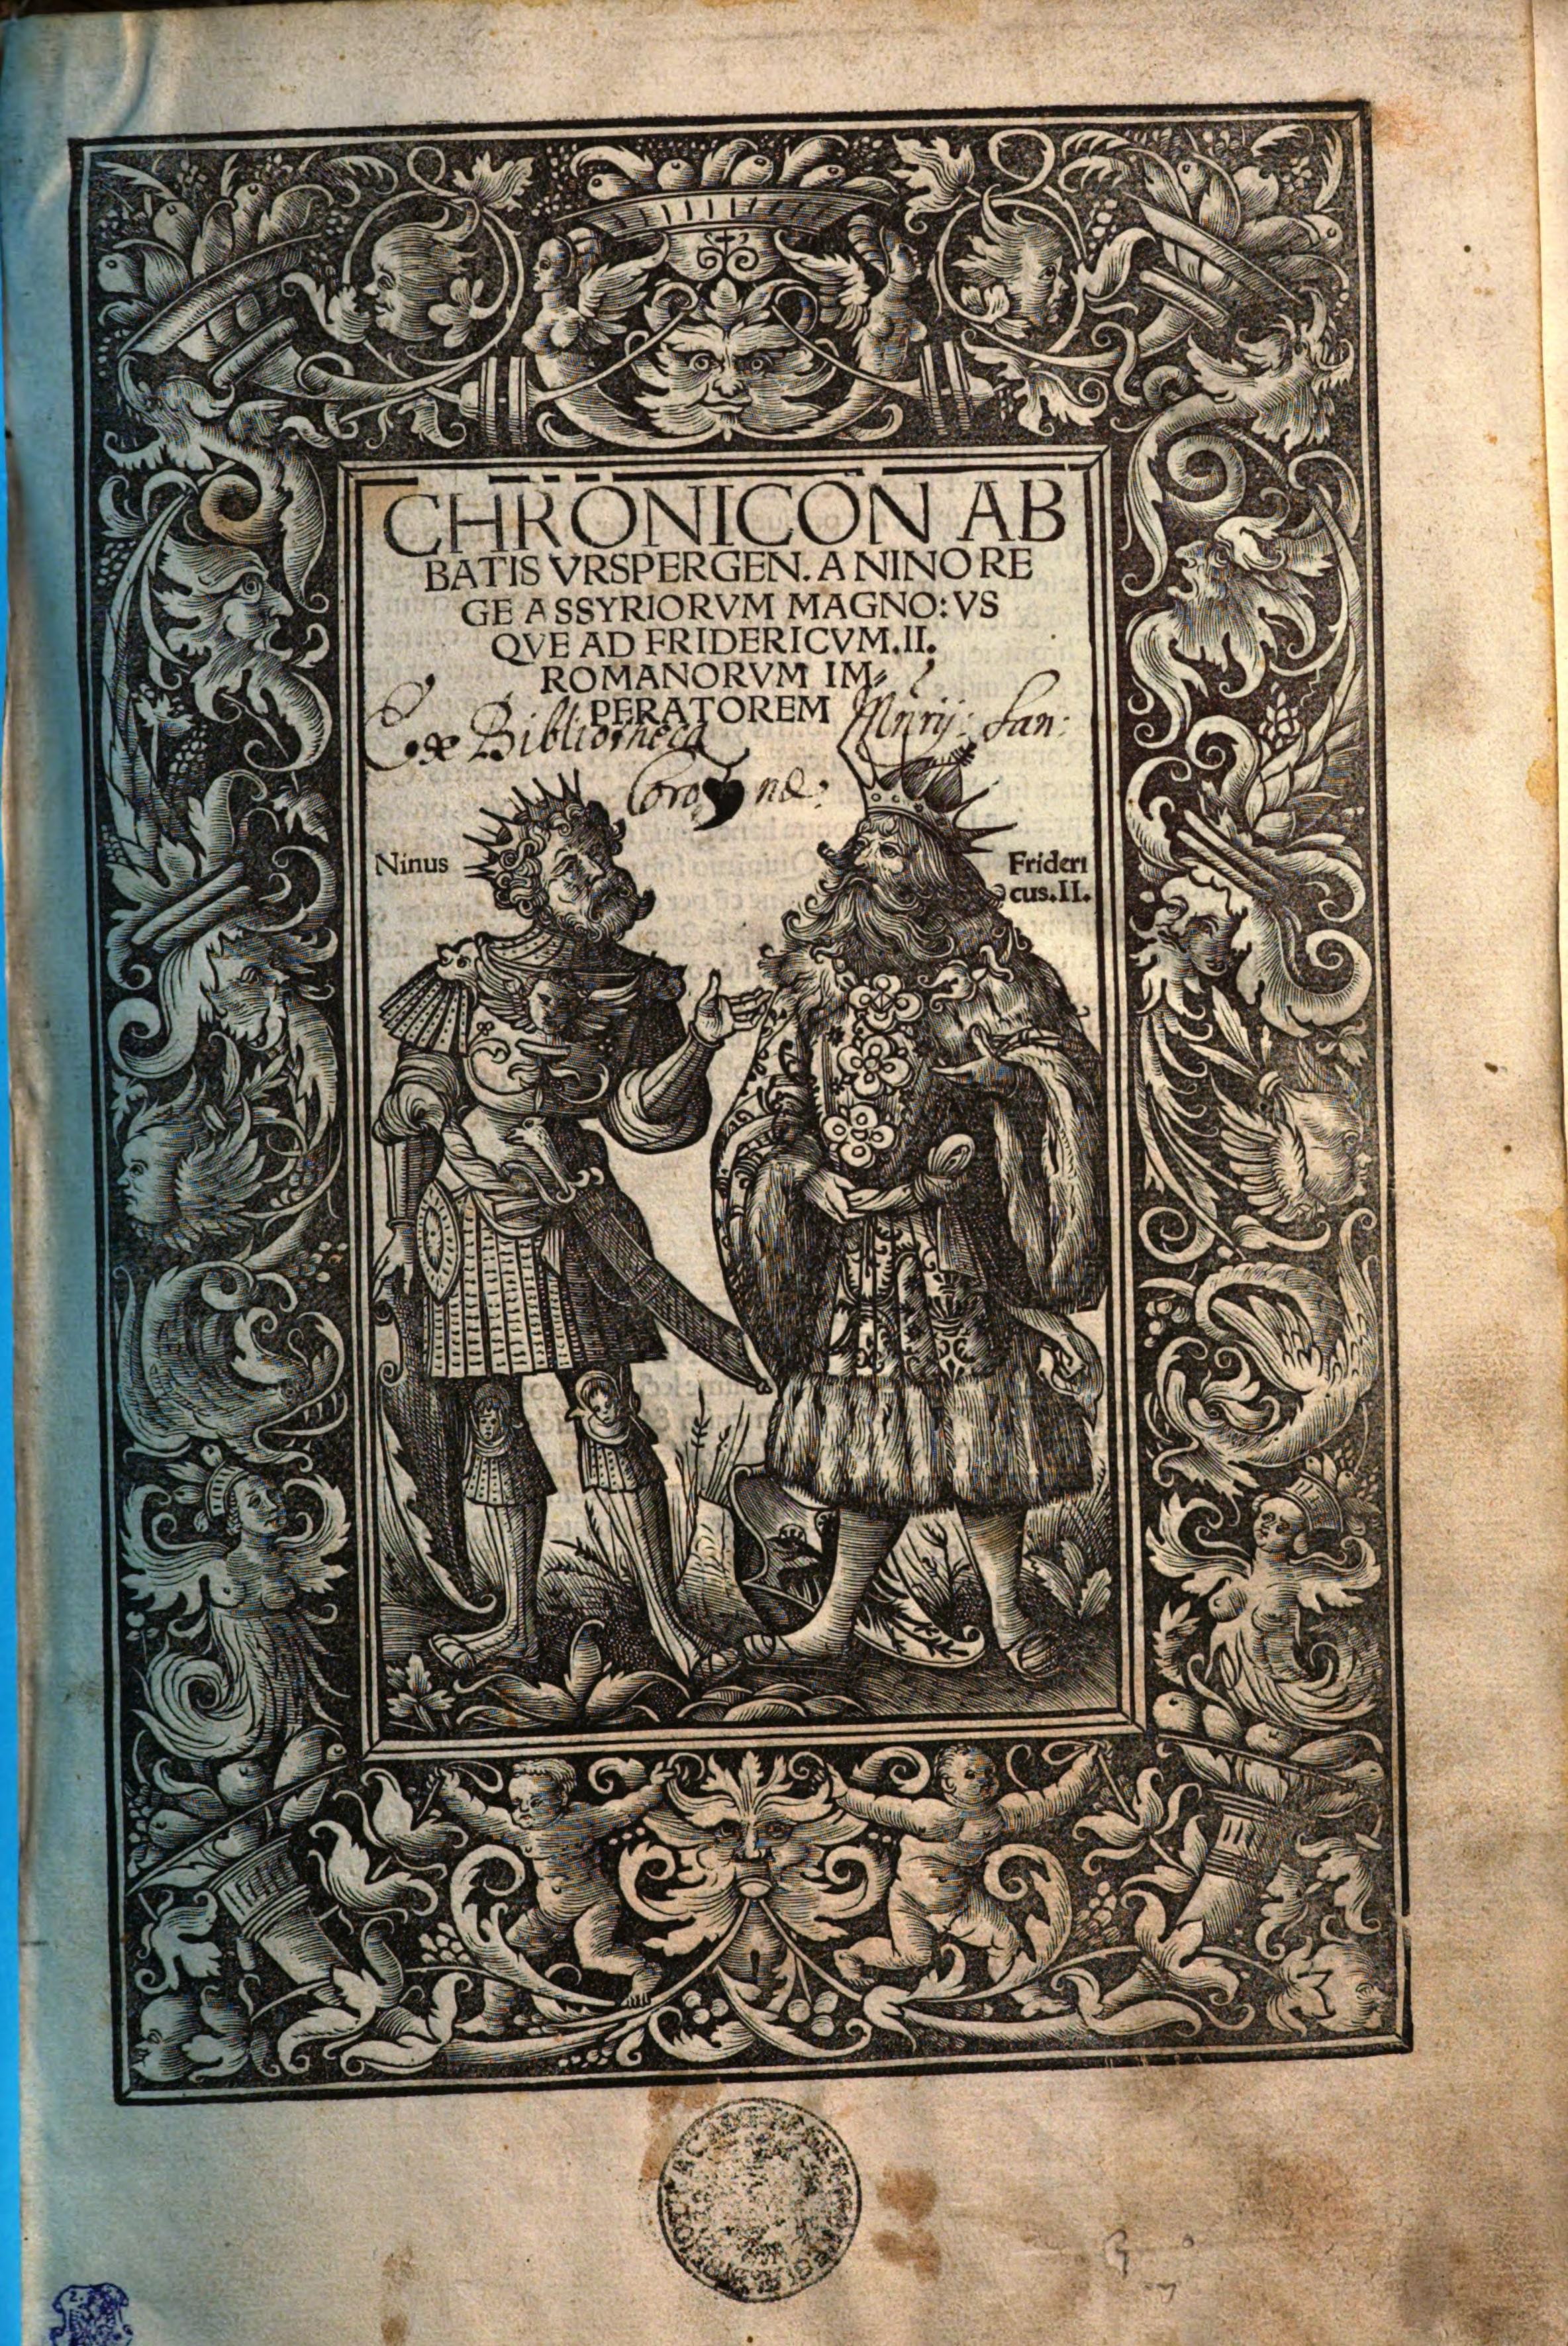 CHRONICON AB
BATIS VRSPERGEN. A NINO RE
GE ASSYRIORVM MAGNO: VS
QVE AD FRIDERICVM. II.
ROMANORVM IM⸗
PERATOREM
Ex Bibliotheca
Ninus
Frideri
cus. II.